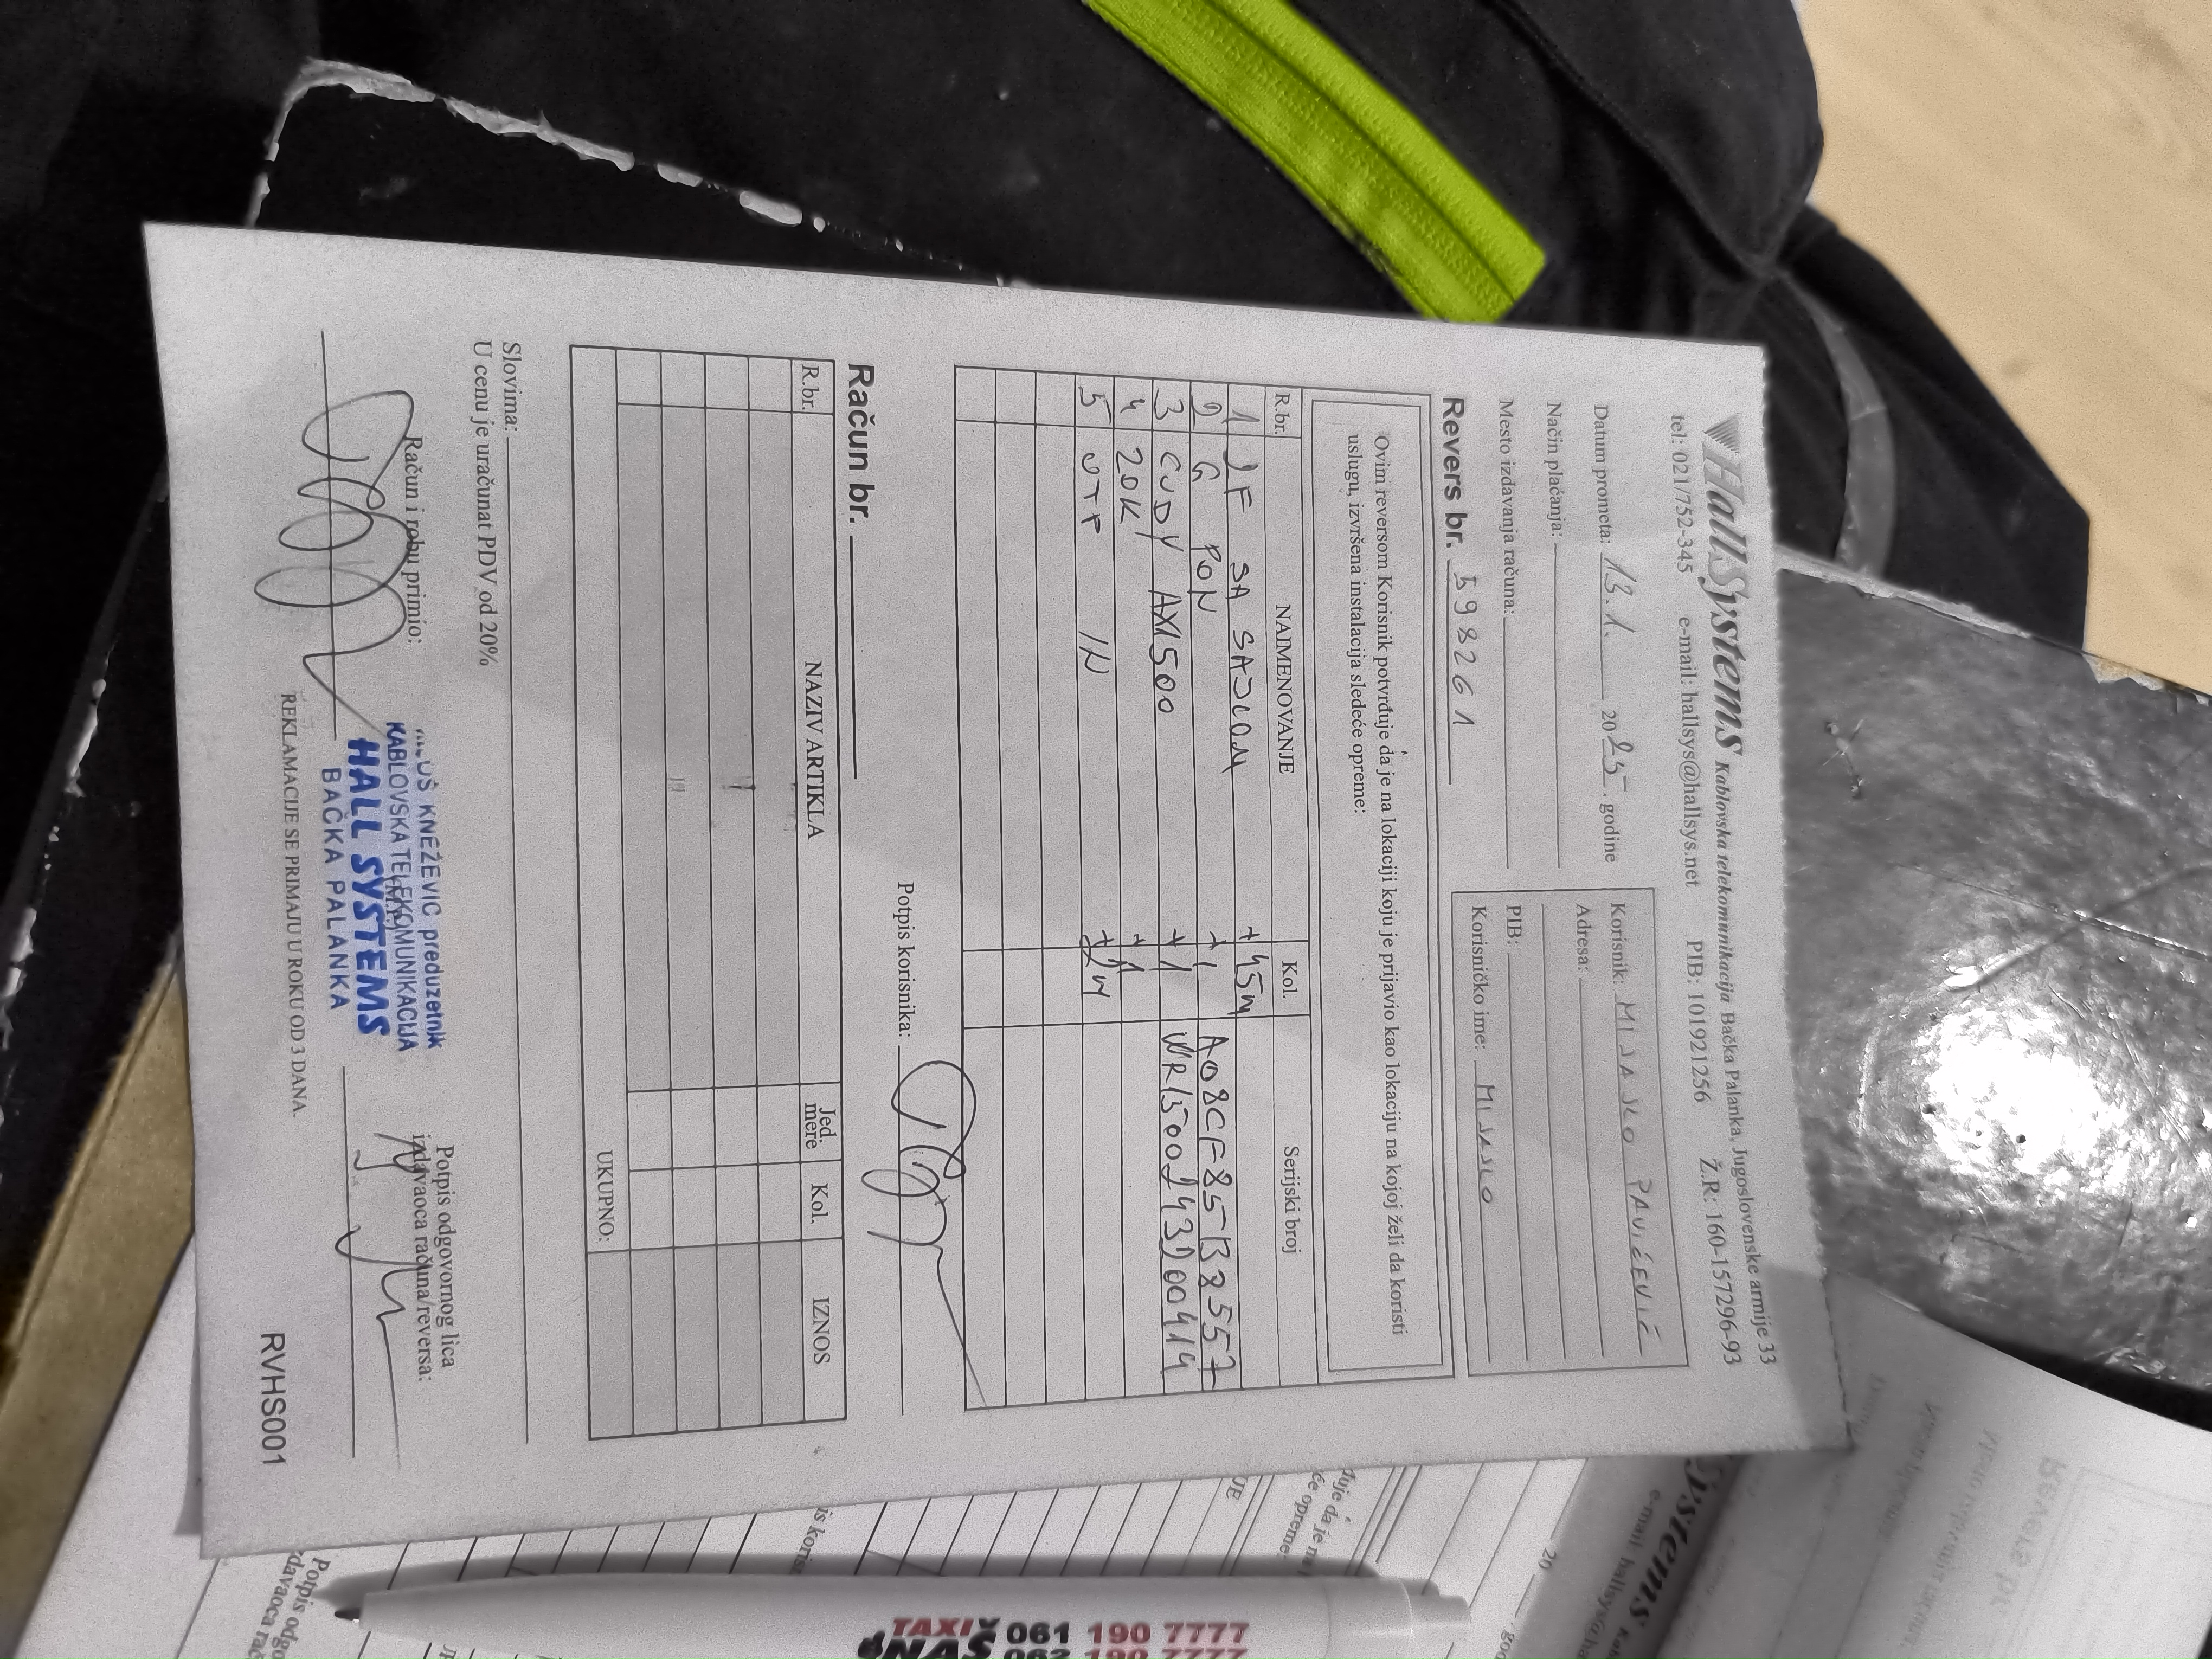 HallSystems Kablovska telekomunikacija Bačka Palanka, Jugoslovenske armije 33
tel: 021/752-345 e-mail: hallsys@hallsys.net PIB: 101921256 Ž.R: 160-157296-93
Datum prometa: 13.1. 2025. godine
Način plaćanja:
Mesto izdavanja računa:
Korisnik: MIJAJLO PAVIĆEVIĆ
Adresa:
PIB:
Korisničko ime: MIJAJLO
Revers br. 598261
Ovim reversom Korisnik potvrđuje da je na lokaciji koju je prijavio kao lokaciju na kojoj želi da koristi
uslugu, izvršena instalacija sledeće opreme:
R.br. NAIMENOVANJE Kol. Serijski broj
1 2F SA SAJLOM +45m
2 G PON +1 A08CF85B83557
3 CUDY AX1500 +1 WR1500243200414
4 20K +1
5 UTP IN +2M
Potpis korisnika:
Račun br.
R.br. NAZIV ARTIKLA Jed. mere Kol. IZNOS
UKUPNO:
Slovima:
U cenu je uračunat PDV od 20%
Račun i robu primio:
MILOŠ KNEŽEVIĆ preduzetnik
KABLOVSKA TELEKOMUNIKACIJA
HALL SYSTEMS
BAČKA PALANKA
Potpis odgovornog lica
izdavaoca računa/reversa:
REKLAMACIJE SE PRIMAJU U ROKU OD 3 DANA.
RVHS001
TAXI 061 190 7777
NAŠ 062 190 7777